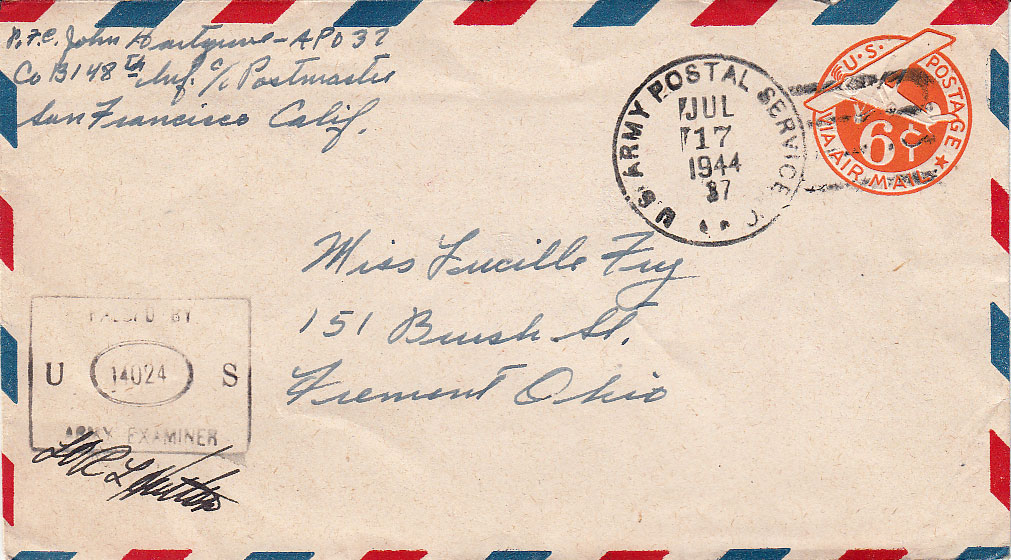 P.F.C. John Hartgrove - APO 37
Co B 148th Inf. c/o Postmaster
San Francisco Calif.
U.S. ARMY POSTAL SERVICE
JUL
17
1944
U.S. POSTAGE
6¢
VIA AIR MAIL
Miss Lucille Fry
151 Bursh St.
Fremont Ohio
PASSED BY
U 14024 S
ARMY EXAMINER